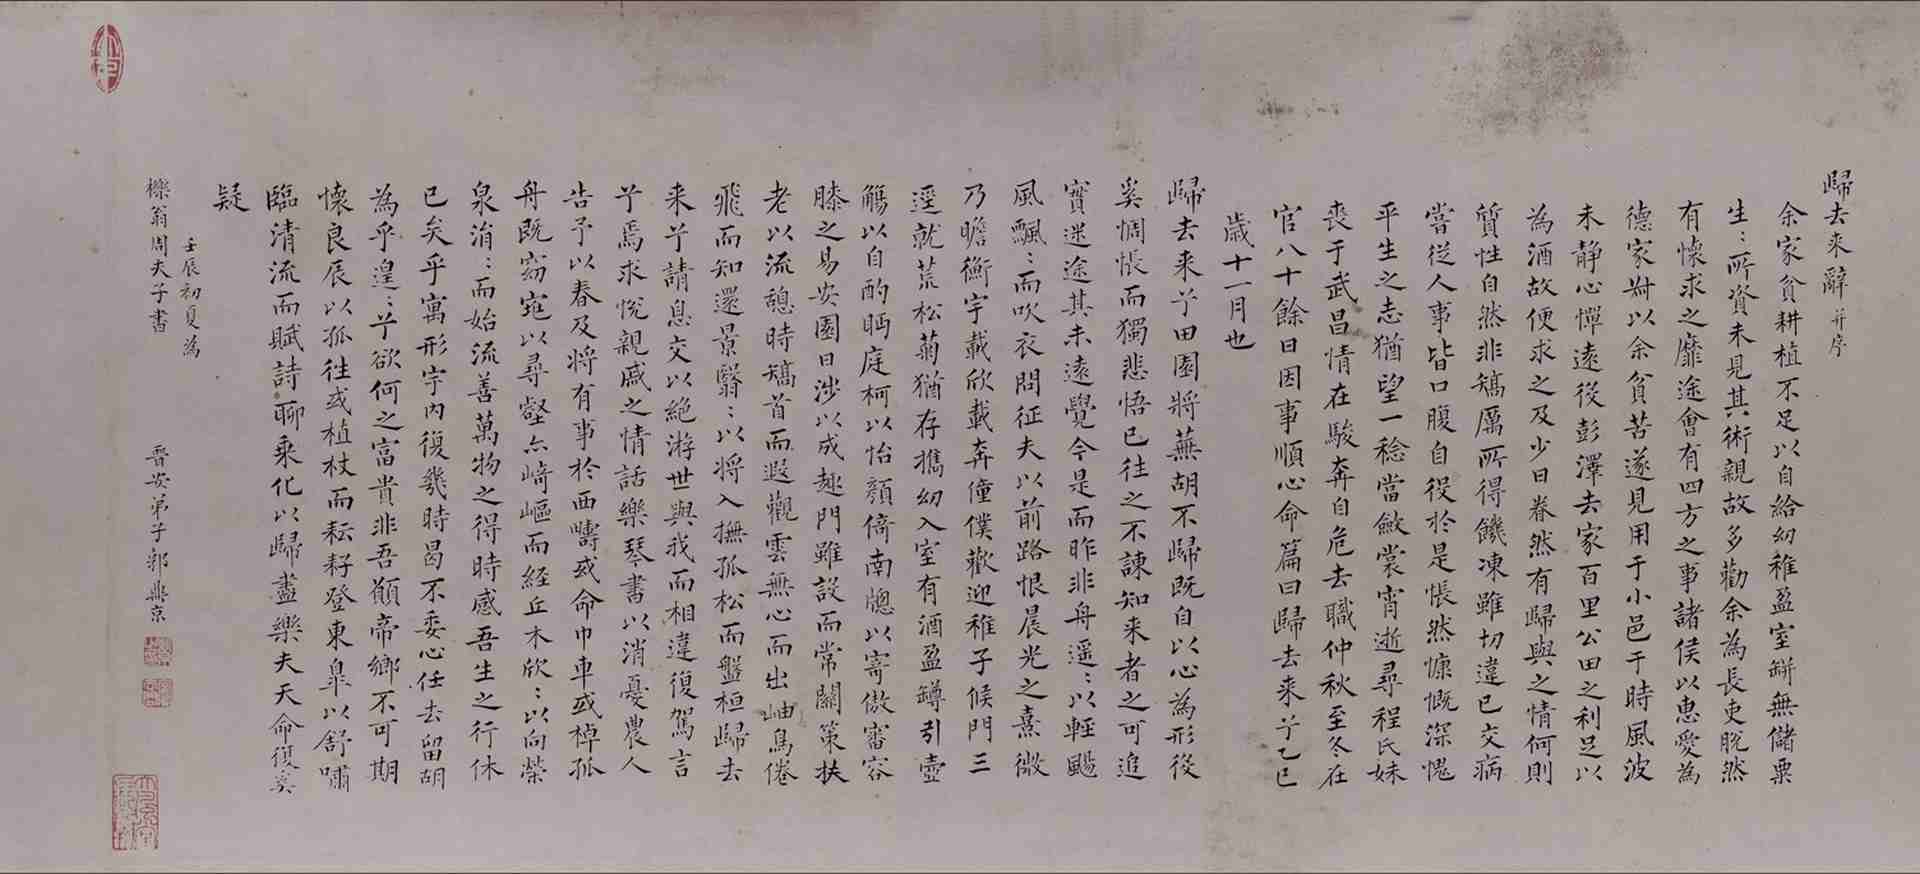 歸去来辭并序
余家貧耕植不足以自給幼稚盈室缾無儲粟
生:所資未見其術親故多勸余為長吏脫然
有懷求之靡途會有四方之事諸侯以惠愛為
德家尗以余貧苦遂見用于小邑于時風波
未静心憚遠役彭澤去家百里公田之利足以
為酒故便求之及少日眷然有歸與之情何則
質性自然非矯厲所得饑凍雖切違已交病
嘗從人事皆口腹自役於是悵然慷慨深愧
平生之志猶望一稔當斂裳宵逝尋程氏妹
喪于武昌情在駿奔自危去職仲秋至冬在
官八十餘日因事順心命篇曰歸去来兮乙巳
歲十一月也
歸去来兮田園將蕪胡不歸既自以心為形役
奚惆悵而獨悲悟已往之不諫知来者之可追
實迷途其未遠覺今是而昨非舟遥:以輕颺
風飄:而吹衣問征夫以前路恨晨光之熹微
乃瞻衡宇載欣載奔僮僕歡迎稚子候門三
逕就荒松菊猶存攜幼入室有酒盈罇引壺
觴以自酌眄庭柯以怡顏倚南牕以寄傲審容
膝之易安園日涉以成趣門雖設而常關策扶
老以流憩時矯首而遐觀雲無心而出岫鳥倦
飛而知還景翳:以將入撫孤松而盤桓歸去
来兮請息交以絶游世與我而相違復駕言
兮焉求悅親戚之情話樂琴書以消憂農人
告予以春及将有事於西疇或命巾車或棹孤
舟既窈窕以尋壑亦崎嶇而経丘木欣:以向榮
泉涓:而始流善萬物之得時感吾生之行休
已矣乎寓形宇內復幾時曷不委心任去留胡
為乎遑:兮欲何之富貴非吾願帝鄉不可期
懷良辰以孤往或植杖而耘耔登東臯以舒嘯
臨清流而賦詩聊乘化以歸盡樂夫天命復奚
疑
壬辰初夏為
櫟翁周夫子書
晋安弟子郭鼎京